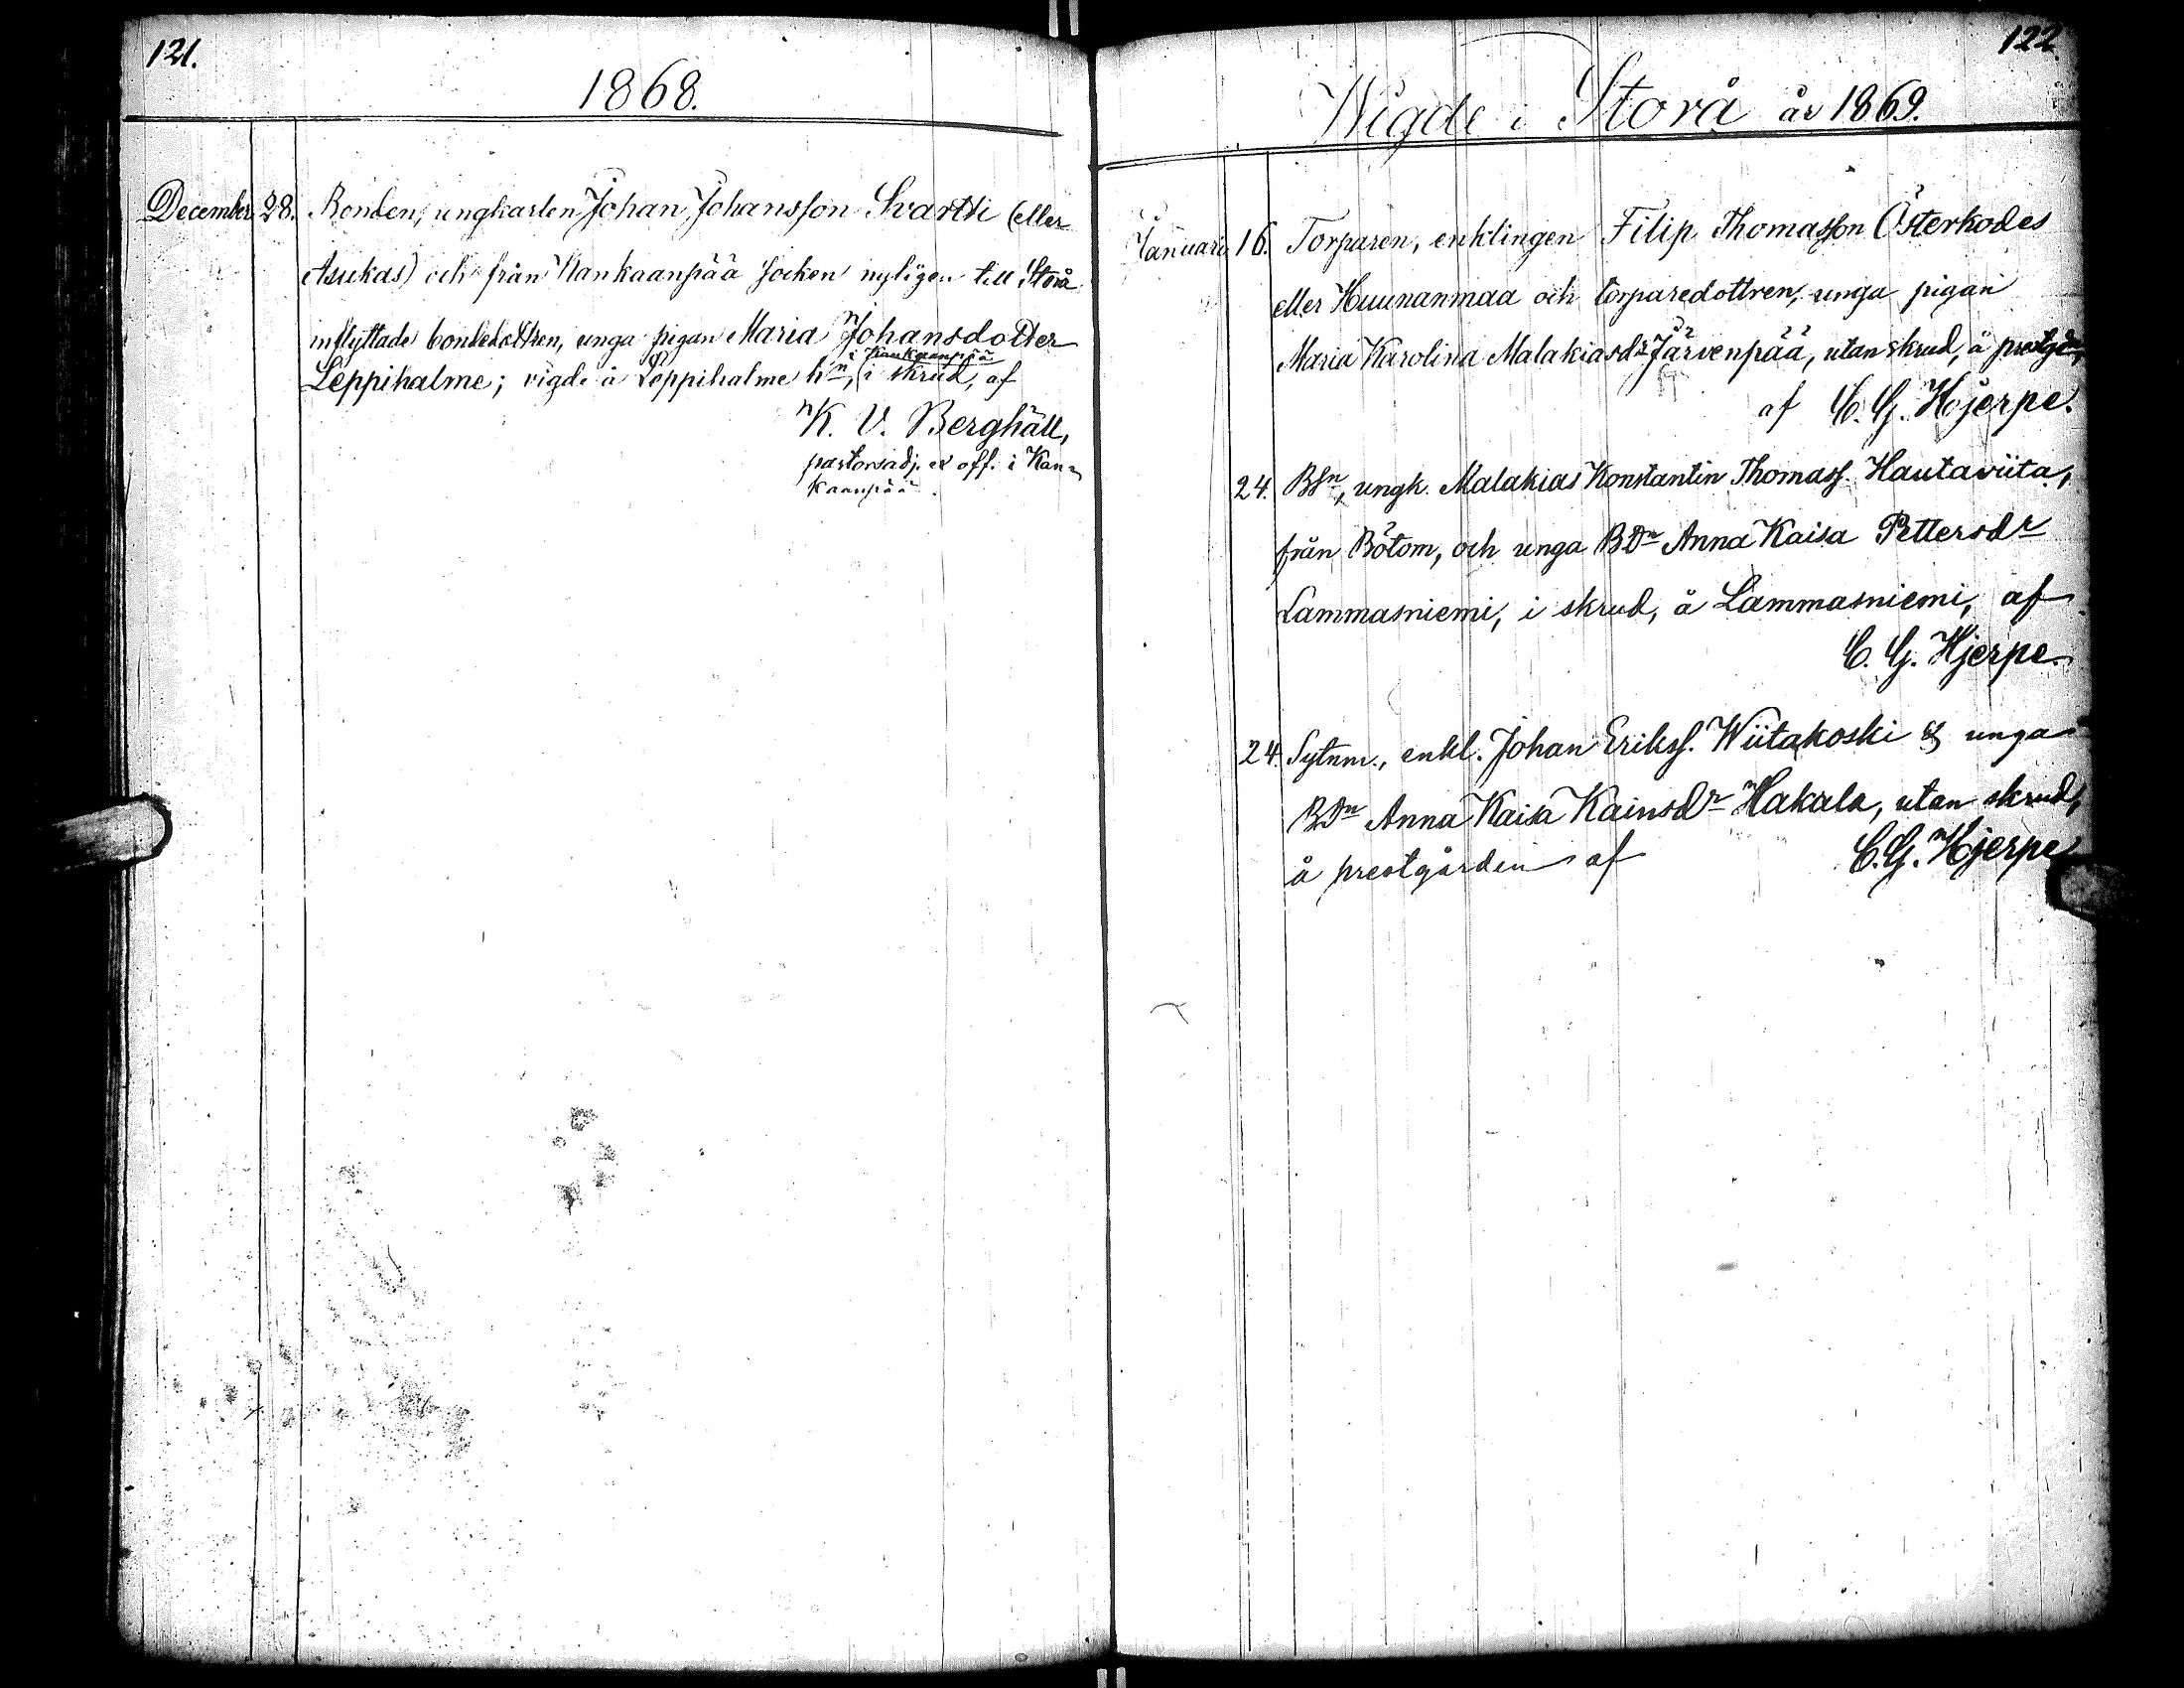 121.
1868.
December 28. Bonden, ungkarlen Johan Johansson Svartti (eller
Asukas) och från Kankaanpää socken nyligen till Storå
inflyttade bondedottren, unga pigan Maria Johansdotter
i Kankaanpää
Leppihalme; vigde å Leppihalme hn, i skrud, af
K. V. Berghäll,
pastorsadj. ex off. i Kan-
kaanpää.
122
Wigde i Storå år 1869.
Januari 16. Torparen, enklingen Filip Thomasson Österkodes
eller Huunanmaa och torparedottren, unga pigan
Maria Karolina Malakiasdr Järvenpää, utan skrud, å prestgdn,
af C. G. Hjerpe.
24. BSn, ungk. Malakias Konstantin Thomass. Hautaviita,
från Bötom, och unga BDn Anna Kaisa Pettersdr
Lammasniemi, i skrud, å Lammasniemi, af
C. G. Hjerpe.
24. Sytnm., enkl. Johan Erikss. Wiitakoski & unga
BDn Anna Kaisa Kainsdr Hakala, utan skrud,
å prestgården af C. G. Hjerpe